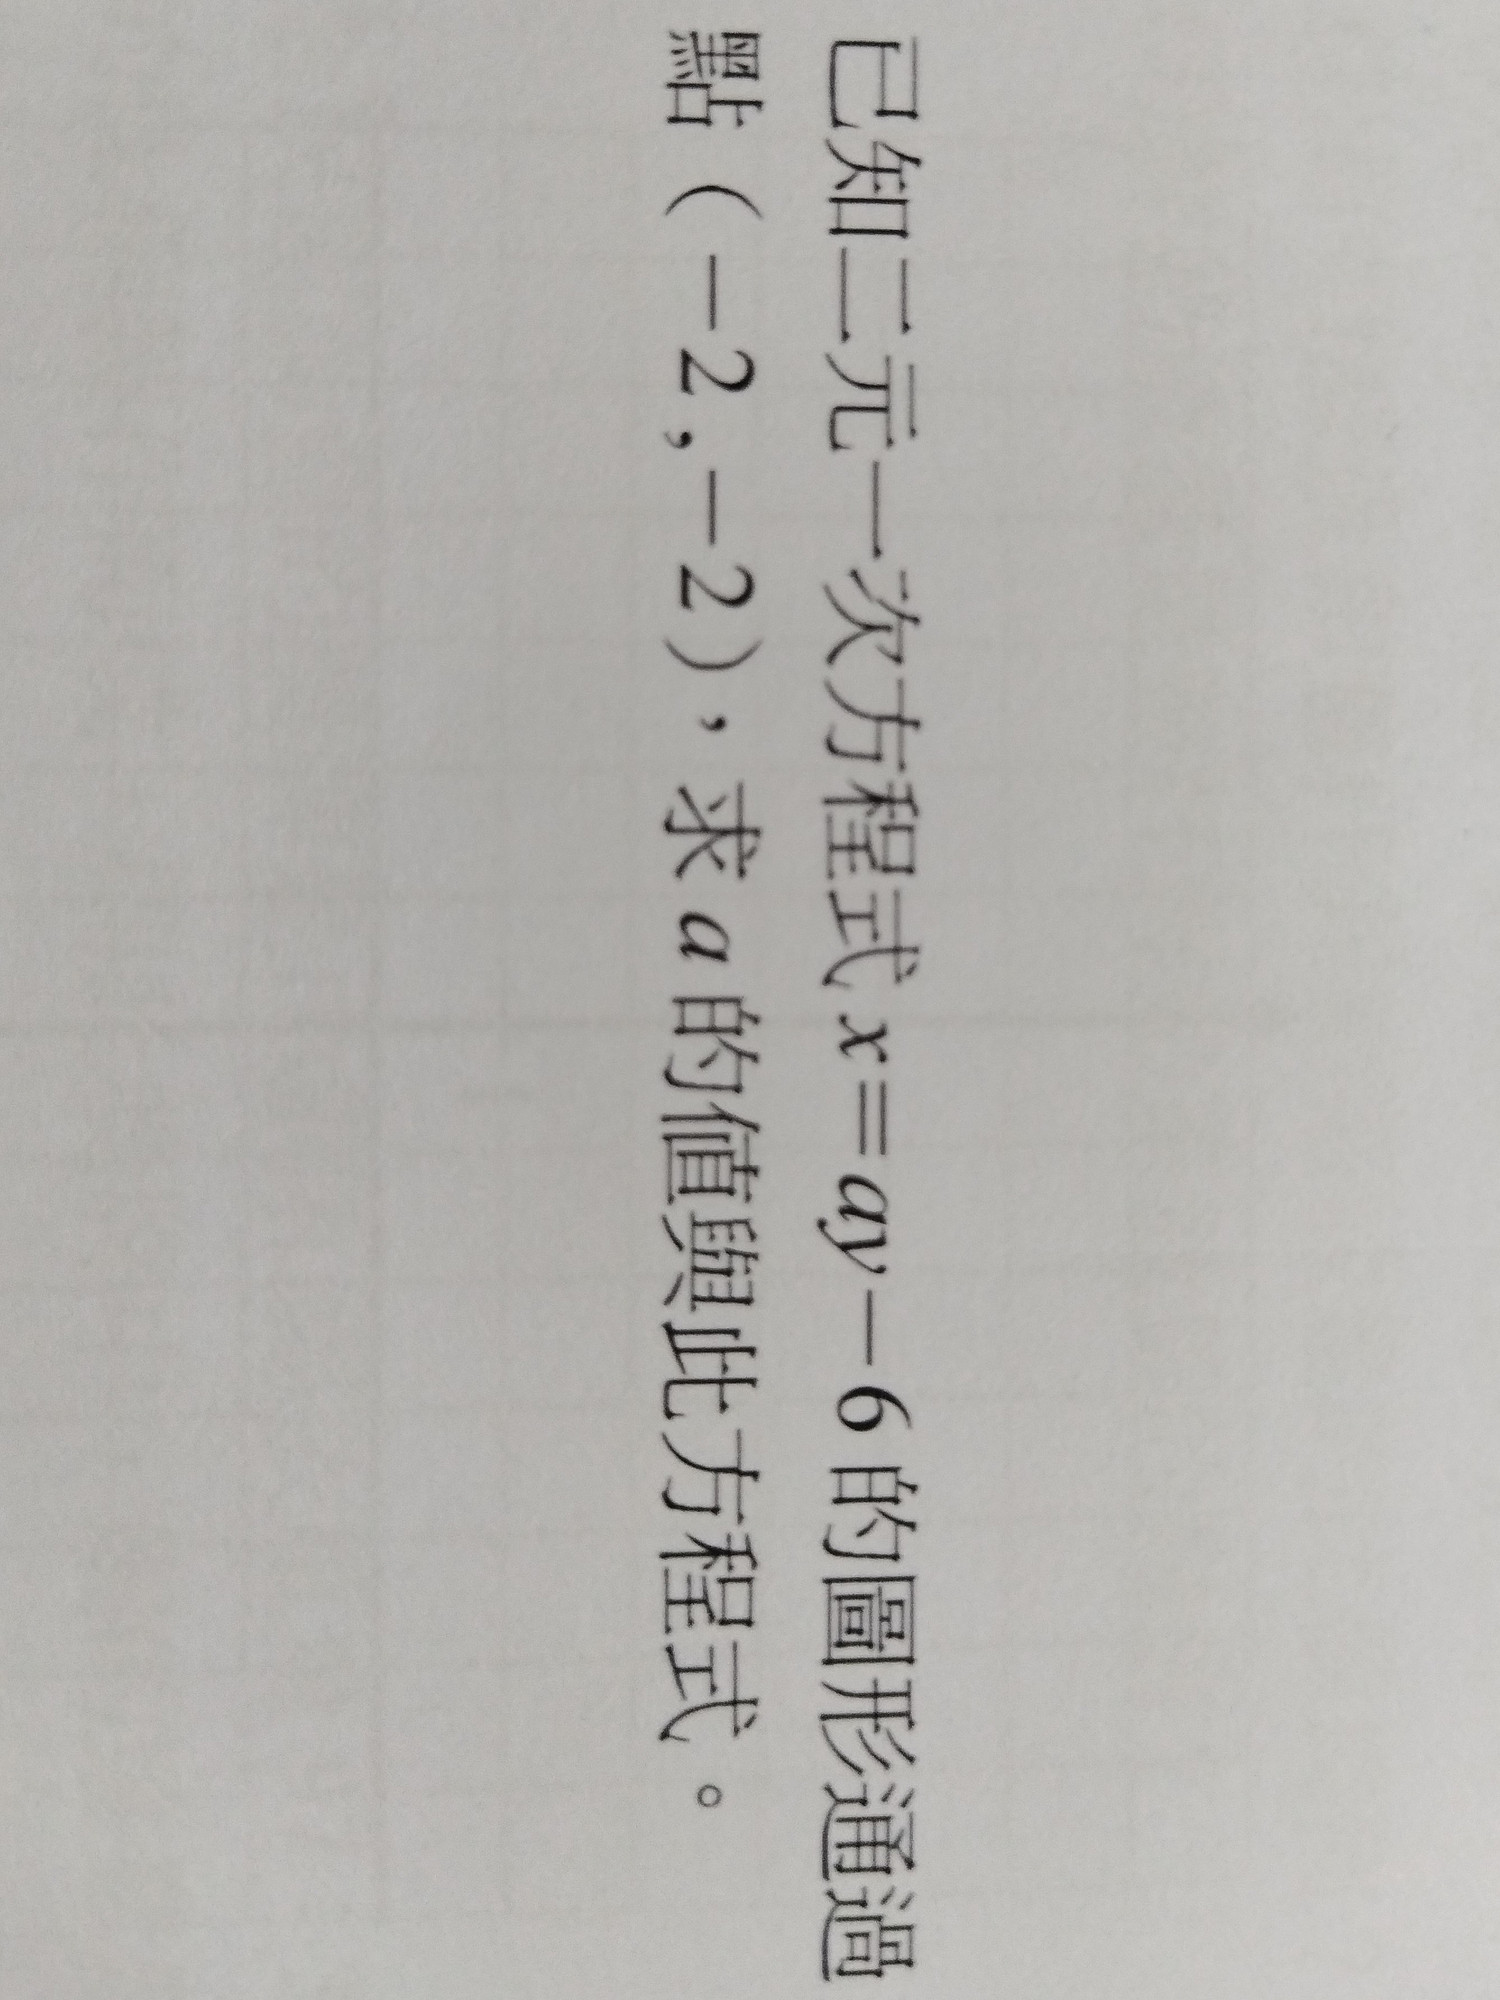 已知二元一次方程式 x=ay－6 的圖形通過
點（－2,－2），求 a 的值與此方程式。